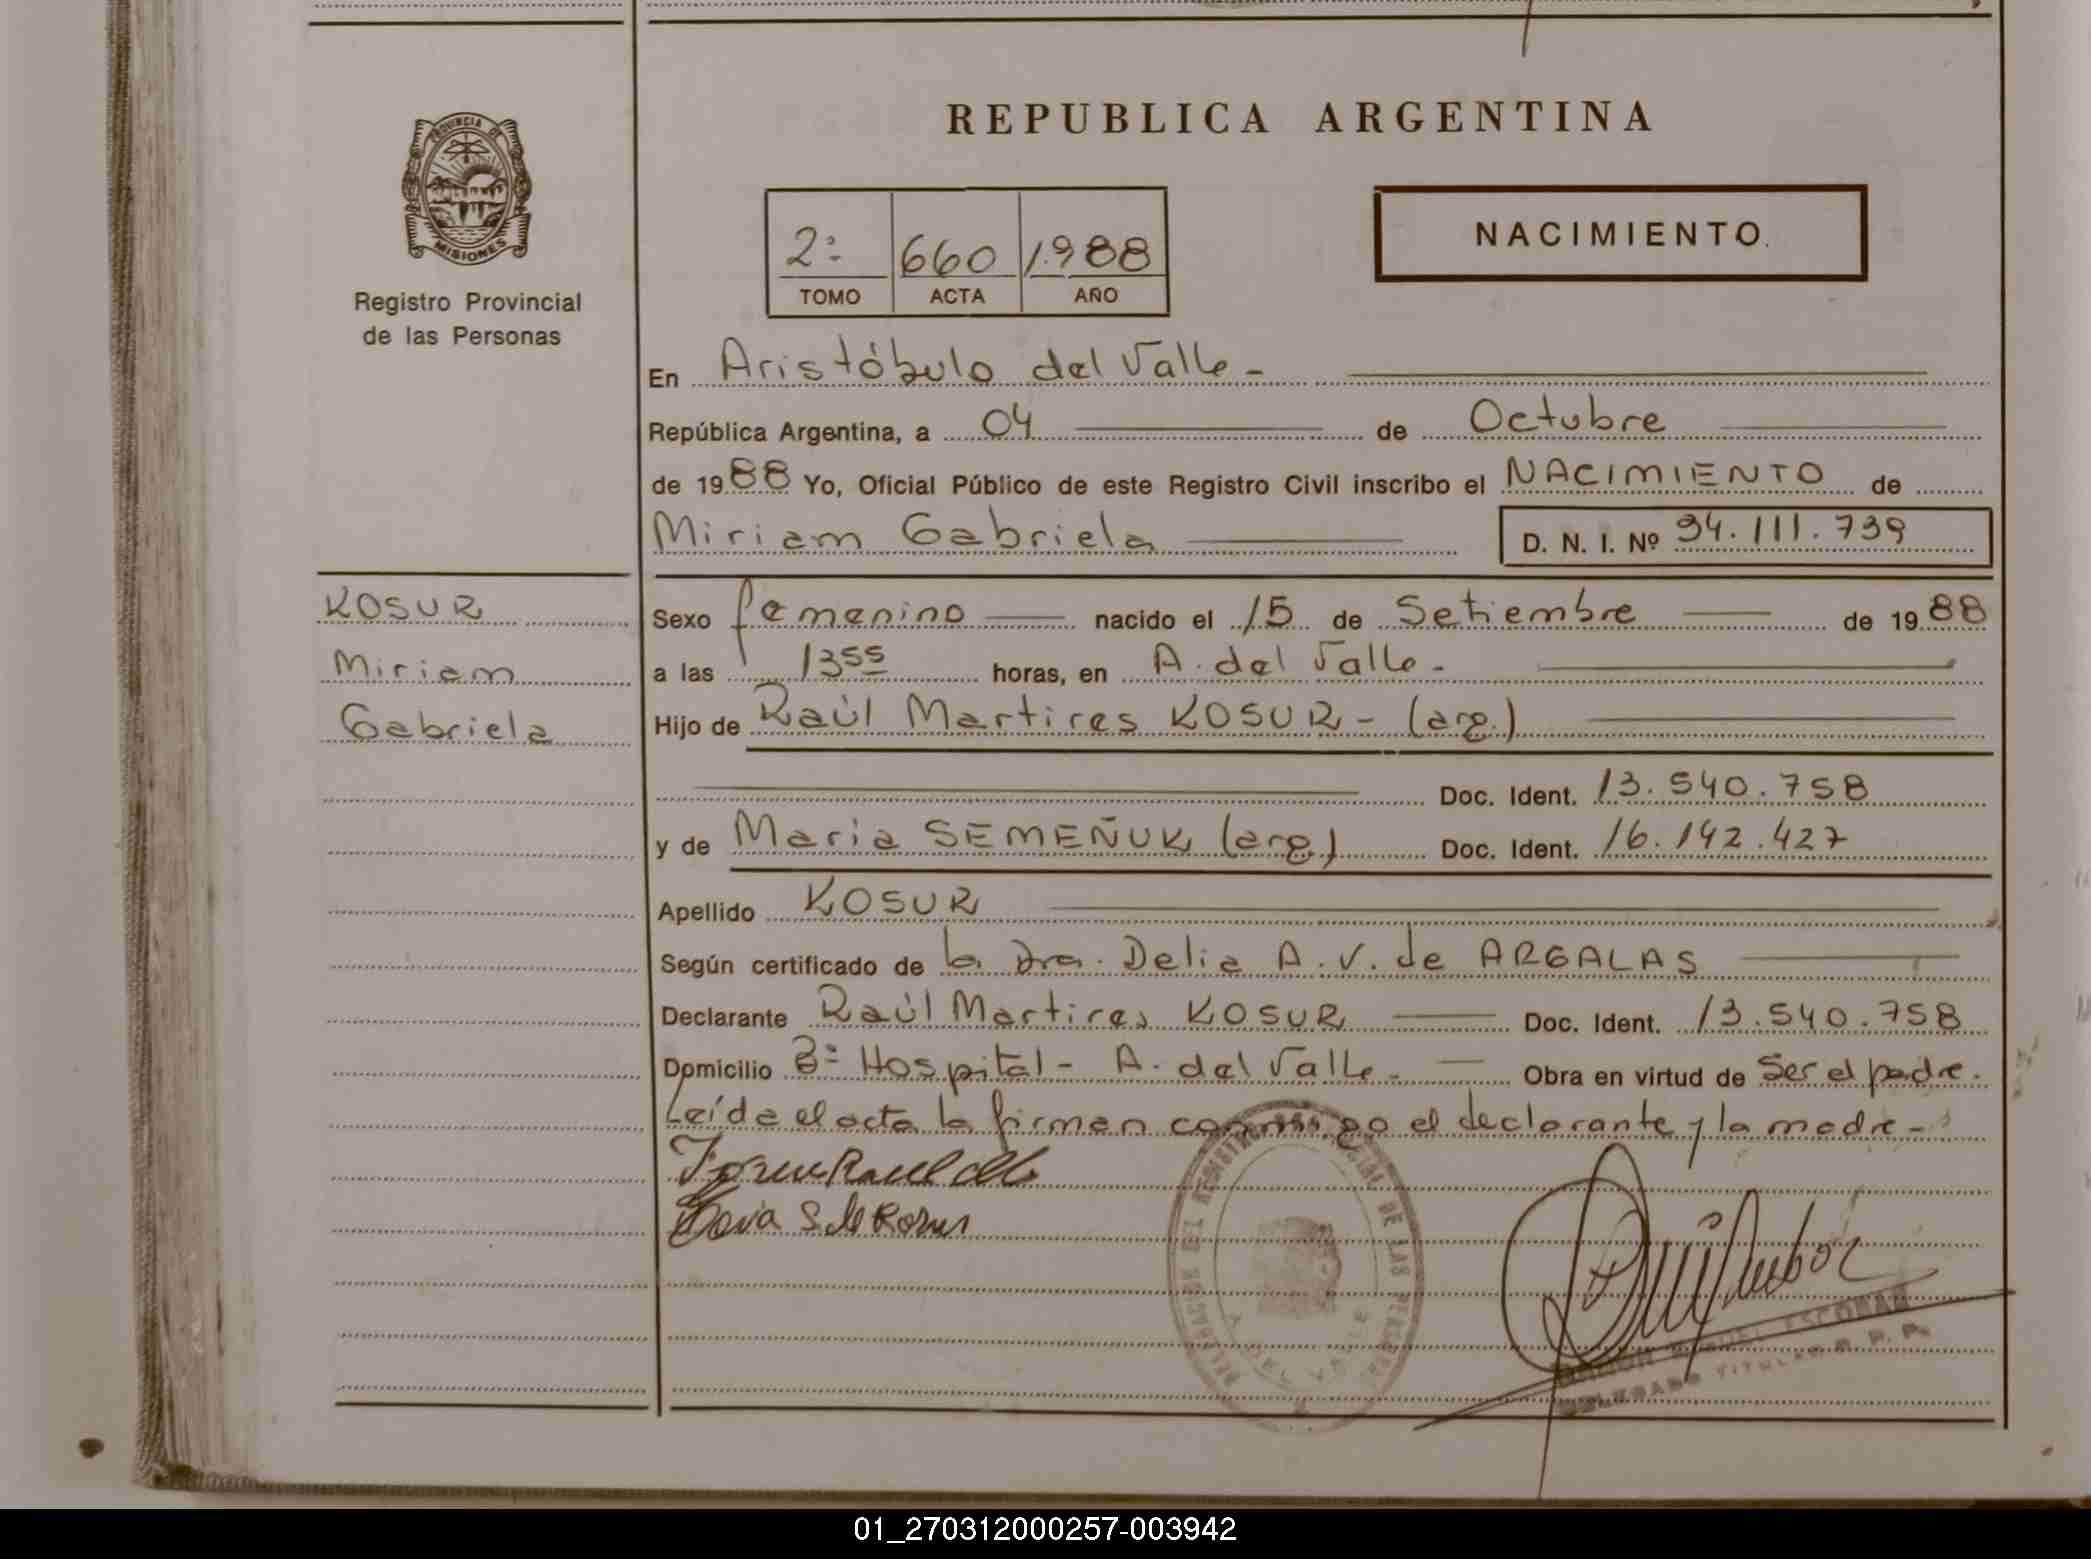 PROVINCIA DE
MISIONES
Registro Provincial
de las Personas
REPUBLICA ARGENTINA
2: 660 1.988
TOMO ACTA AÑO
NACIMIENTO.
En Aristóbulo del Valle -
República Argentina, a 04 de Octubre
de 1988 Yo, Oficial Público de este Registro Civil inscribo el NACIMIENTO de
Miriam Gabriela D. N. I. Nº 34.111.739
KOSUR
Miriam
Gabriela
Sexo femenino nacido el 15 de Setiembre de 1988
a las 13 55 horas, en A. del Valle -
Hijo de Raúl Martires KOSUR - (arg.)
Doc. Ident. 13.540.758
y de Maria SEMEÑUK (arg) Doc. Ident. 16.142.427
Apellido KOSUR
Según certificado de la Dra. Delia A. V. de ARGALAS
Declarante Raúl Martires KOSUR Doc. Ident. 13.540.758
Domicilio Bº Hospital - A. del Valle - Obra en virtud de Ser el padre.
Leída el acta la firman conmigo el declarante y la madre -
DEL REGISTRO DE LAS PERSONAS
A. DEL VALLE
ESCOBAR
DELEGADO TITULAR R. P. P.
01_270312000257-003942